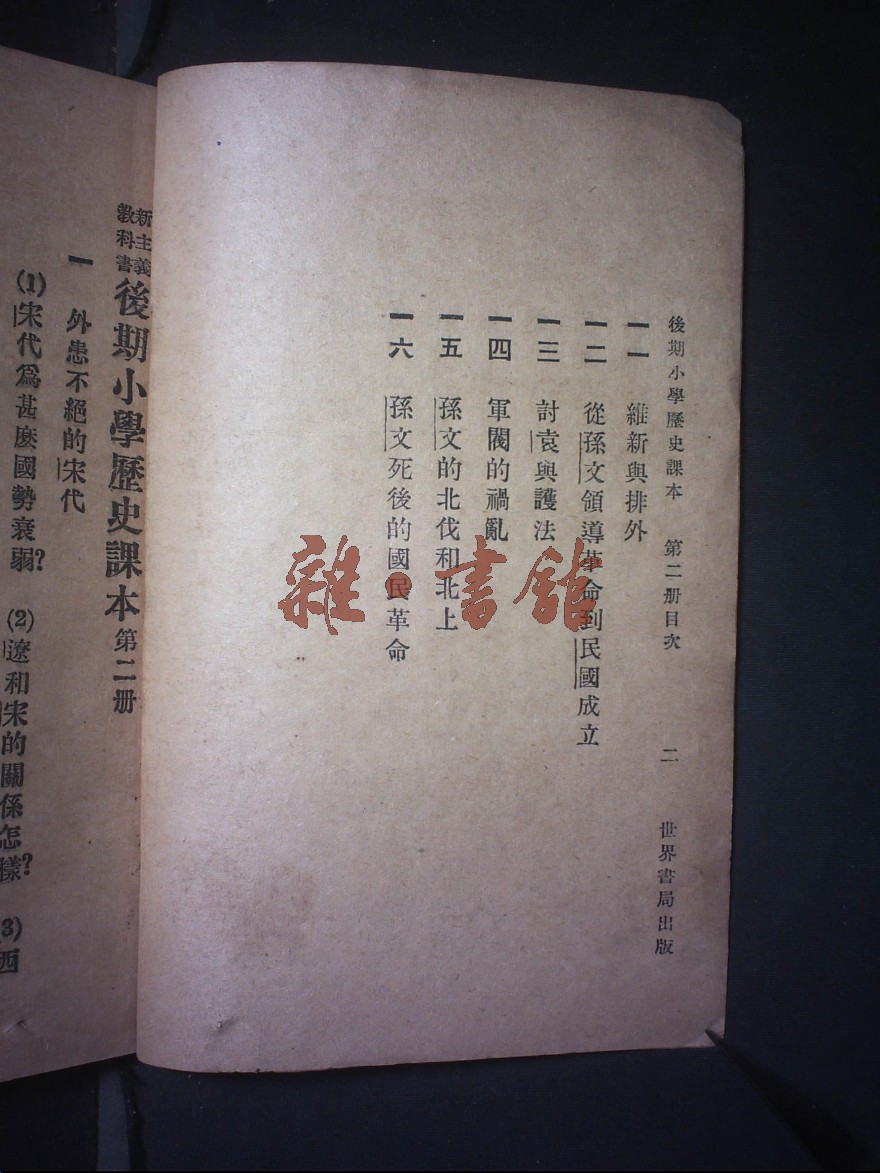 後期小學歷史課本 第二册目次 二 世界書局出版
一一 維新與排外
一二 從孫文領導革命到民國成立
一三 討袁與護法
一四 軍閥的禍亂
一五 孫文的北伐和北上
一六 孫文死後的國民革命
雜·書館
新主義
教科書
後期小學歷史課本 第二册
一 外患不絕的宋代
(1)宋代爲甚麽國勢衰弱? (2)遼和宋的關係怎樣? (3)西